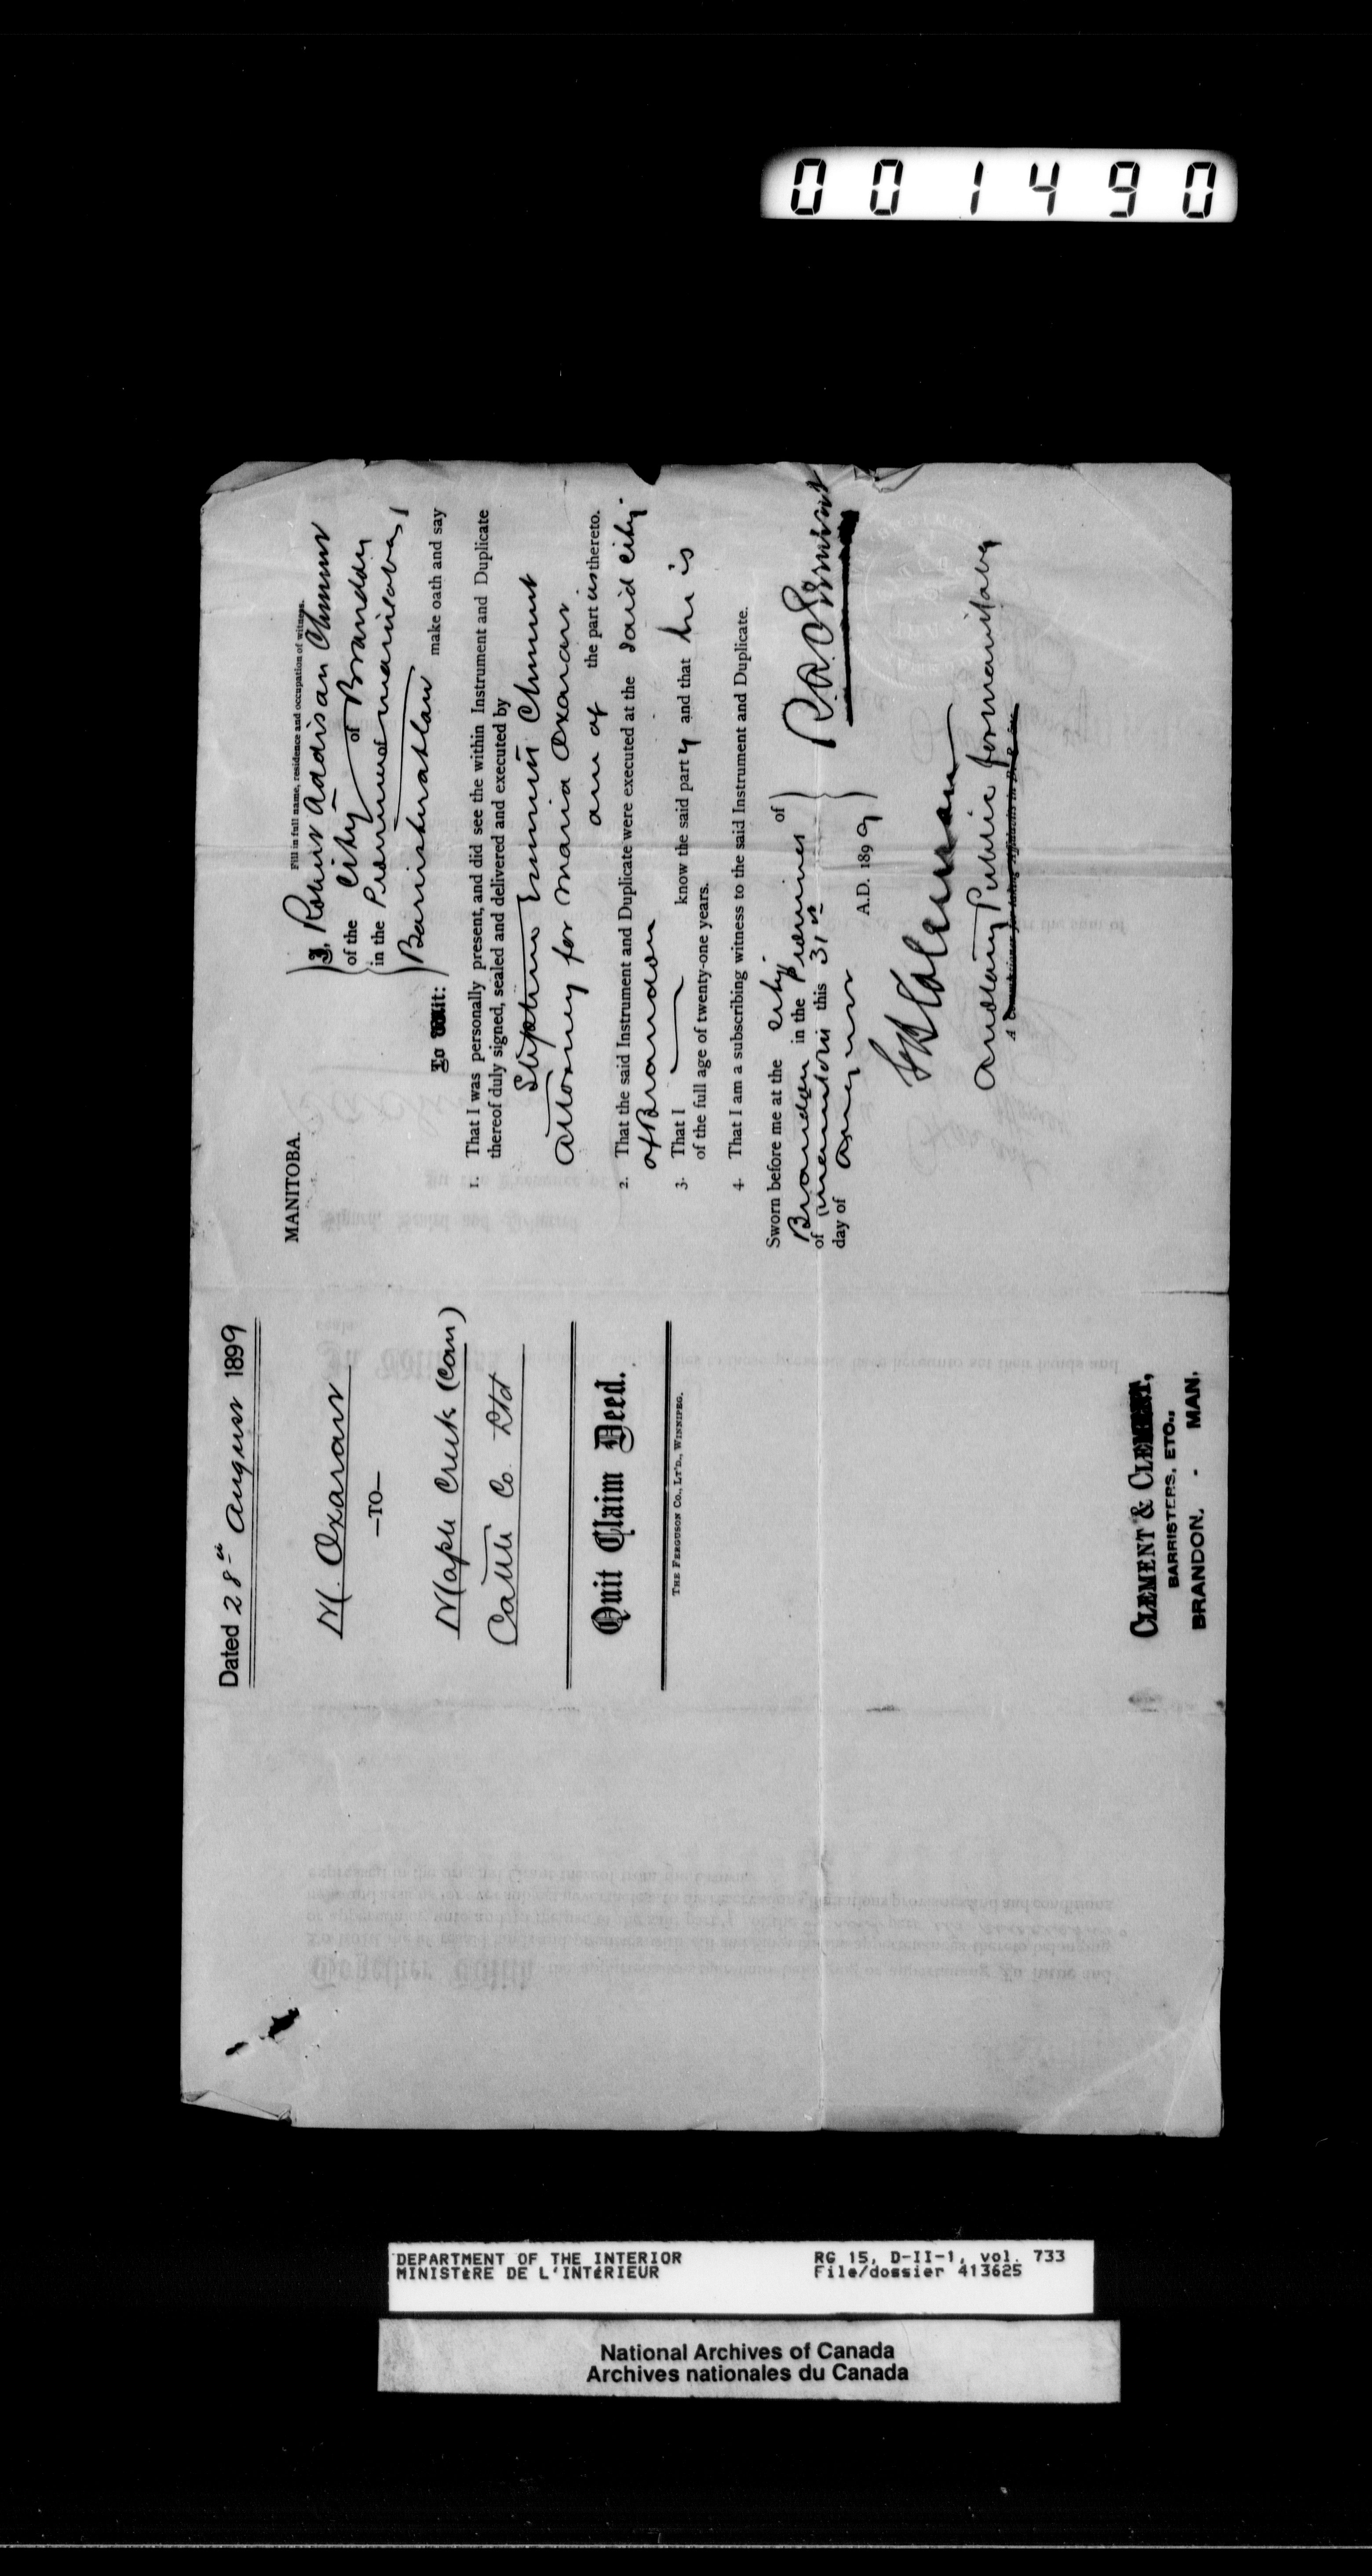 001490
Dated 28th August 1899
M. Oxarart
—TO—
Maple Creek (Can)
Cattle Co. Ltd
Quit Claim Deed.
THE FERGUSON CO., LT'D., WINNIPEG.
CLEMENT & CLEMENT,
BARRISTERS, ETC.,
BRANDON, - MAN.
MANITOBA.
To Wit:
Fill in full name, residence and occupation of witness.
I, Robert Addison Clement
of the City of Brandon
in the Province of Manitoba,
Barrister at law make oath and say
1. That I was personally present, and did see the within Instrument and Duplicate
thereof duly signed, sealed and delivered and executed by
Stephen Clement
Attorney for Maria Oxarart
one of the parties thereto.
2. That the said Instrument and Duplicate were executed at the said city
of Brandon
3. That I know the said party and that he is
of the full age of twenty-one years.
4. That I am a subscribing witness to the said Instrument and Duplicate.
Sworn before me at the city of
Brandon in the Province
of Manitoba this 31st
day of August A.D. 1899
R. A. Clement
A Notary Public for Manitoba
A Commissioner for taking Affidavits in B. R. &c.
DEPARTMENT OF THE INTERIOR
MINISTÈRE DE L'INTÉRIEUR
RG 15, D-II-1, vol. 733
File/dossier 413625
National Archives of Canada
Archives nationales du Canada